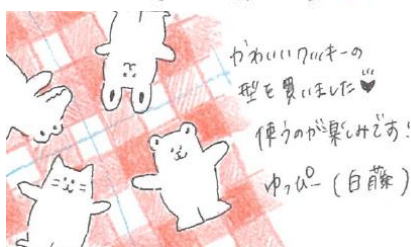 かわいいクッキーの
型を買いました♥
使うのが楽しみです!
ゆっぴー(白藤)